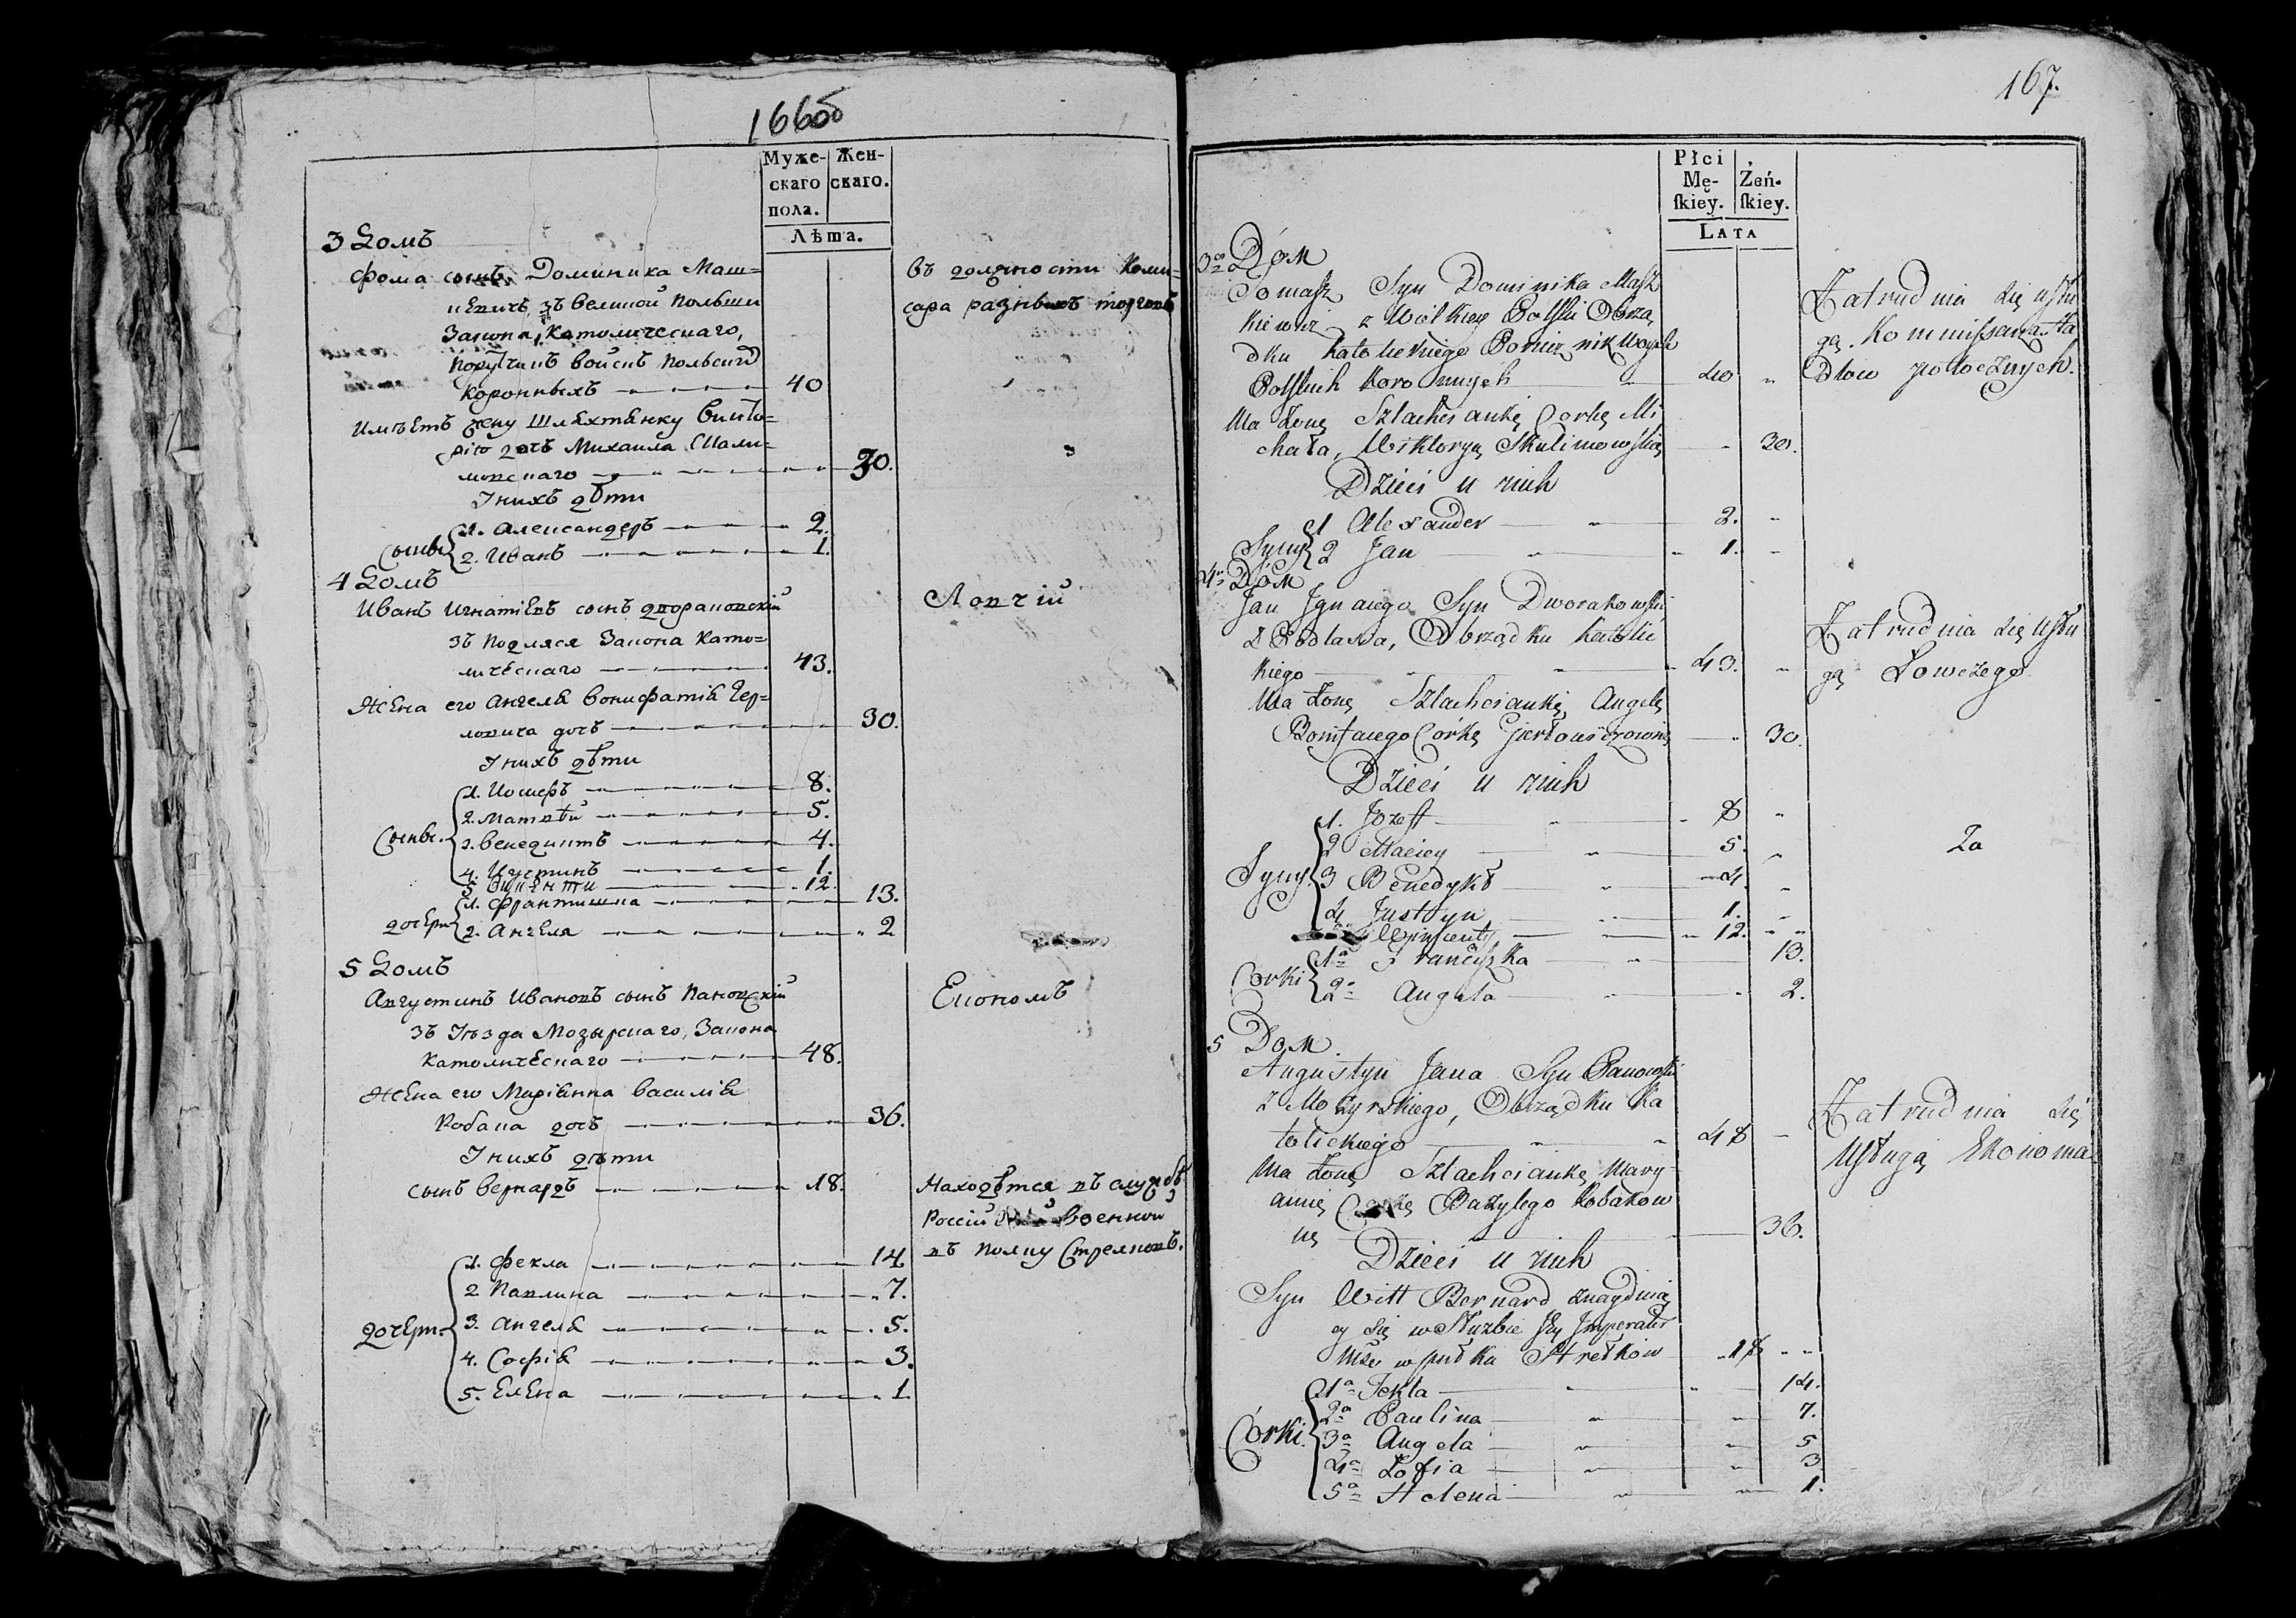 166об
Муже-
скаго
пола.
Жен-
скаго.
Лѣта.
3 Домъ
Фома сынъ Доминика Маш=
кевичъ, зъ великой Польши
Закона, Католическаго,
Поручикъ войскъ Польскихъ
Коронныхъ 40
Имѣетъ жену Шляхтянку Викто=
рію дочь Михаила Скали=
мовскаго 30.
У нихъ дѣти
Сыны 1. Александеръ 2.
2. Иванъ 1.
въ должности Коми=
сара разныхъ торговъ
4 Домъ
Иванъ Игнатіевъ сынъ Двораковскій
зъ Подляся Закона Като=
лическаго 43.
Ловчій
Жена его Ангеля Бонифатія Гер=
ловича дочь 30.
У нихъ дѣти
1. Иосифъ 8.
2. Матвѣй 5.
Сыны. 3. Бенедиктъ 4.
4. Иустинъ 1.
5. Викенти 12.
1. Франтишка 13.
дочери 2. Ангеля 2
5 Домъ
Августинъ Ивановъ сынъ Пановскій
зъ Уѣзда Мозырскаго, Закона
Католическаго 48.
Економъ
Жена его Маріянна Василія
Кобака дочь 36.
У нихъ дѣти
сынъ Бернардъ 18.
Находится въ службѣ
Россій военной
въ полку Стрелковъ.
1. Фекла 14.
2. Павлина 7.
дочери 3. Ангеля 5.
4. Софія 3.
5. Елена 1.
167.
Płci
Mę-
ſkiey.
Żeń-
ſkiey.
LATA
3o Dom
Tomasz Syn Dominika Masz
kiewicz z Wielkiey Polski Obrzą
dku Katolickiego Porucznik Woysk
Polskich Koronnych 40
Zatrudnia się usłu
gą Kommissarza Ha
dlow potocznych.
Ma Żonę Szlachciankę Corkę Mi
chała, Wiktoryą Skulimowską 30.
Dzieci u nich
1 Alexander 2.
Syny 2 Jan 1.
4o Dom
Jan Jgnacego Syn Dworakowski
z Podlasia, Obrządku Katolic
kiego 43.
Zatrudnia się usłu
gą Łowczego
Ma Żonę Szlachciankę Angelę
Bonifacego Córkę Gierłowiczowną 30.
Dzieci u nich
1. Jozeff 8
2 Maciey 5.
Syny. 3 Benedykt 4
4 Justyn 1.
Wincenty 12.
1a Franciszka 13.
Corki 2a Angela 2.
2a
5 Dom.
Augustyn Jana Syn Panowski
z Mozyrskiego, Obrządku Ka
tolickiego 48
Zatrudnia się
Usługą Ekonoma.
Ma Żonę Szlachciankę Mary
annę Corkę Bazylego Kobakow
nę 36.
Dzieci u nich
Syn Witt Bernard znayduią
cy się w Służbie Jey Jmperator
Mści w pułku Strełkow 18
1a Tekla 14.
2a Paulina 7.
Córki. 3a Angela 5
4a Zofia 3
5a Helena 1.